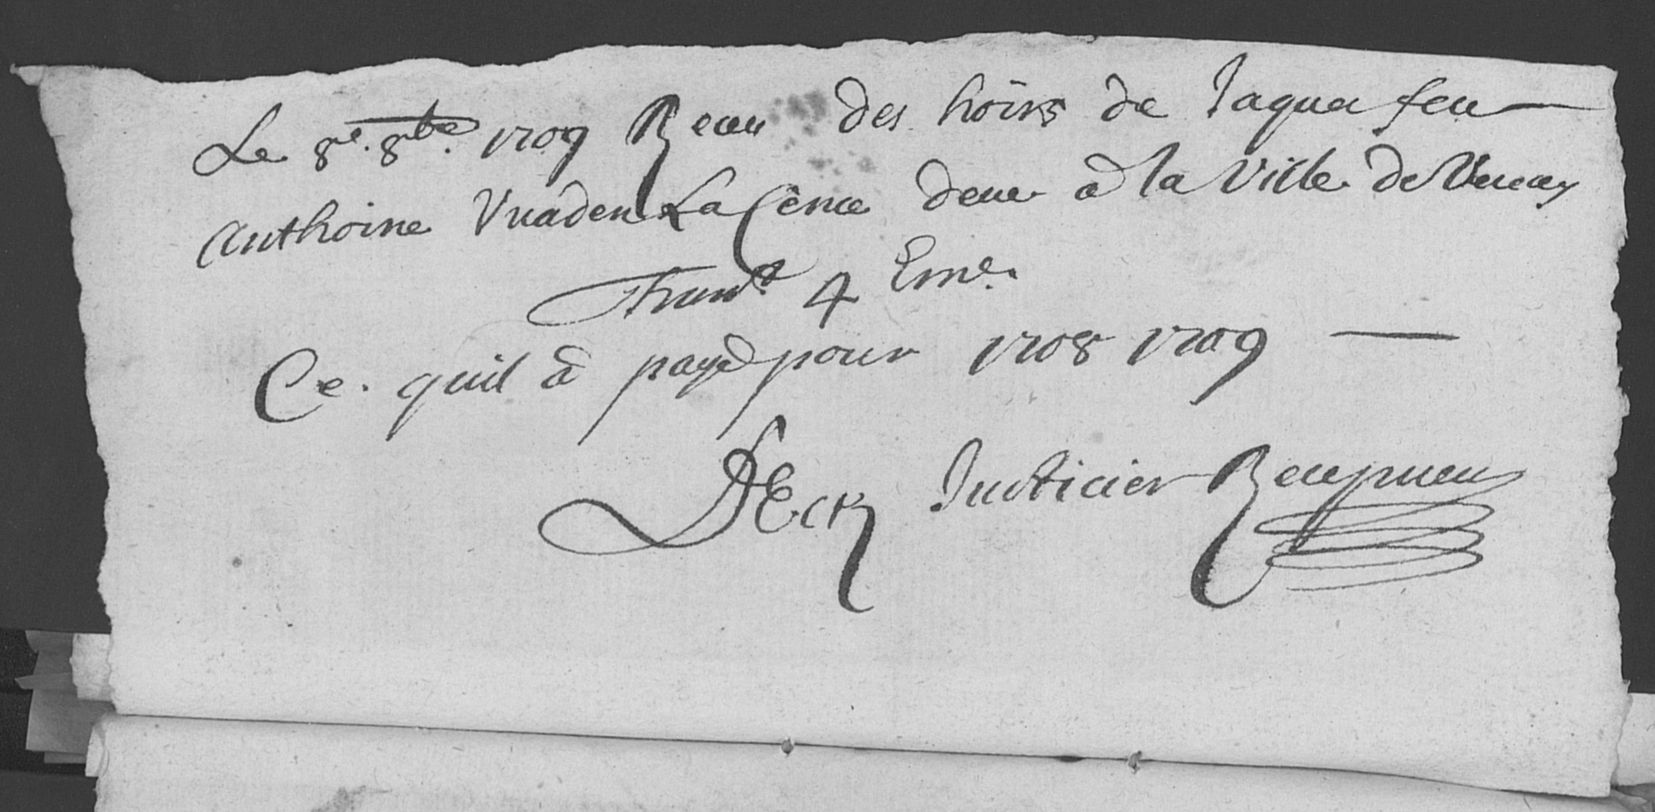 Le 8e. 8bre. 1709 Receu des hoirs de Jaques feu
Anthoine Vuaden La Cence deue a la Ville de Vevay
4
Ce. quil â payé pour 1708 1709
DEck Justicier Recepveur